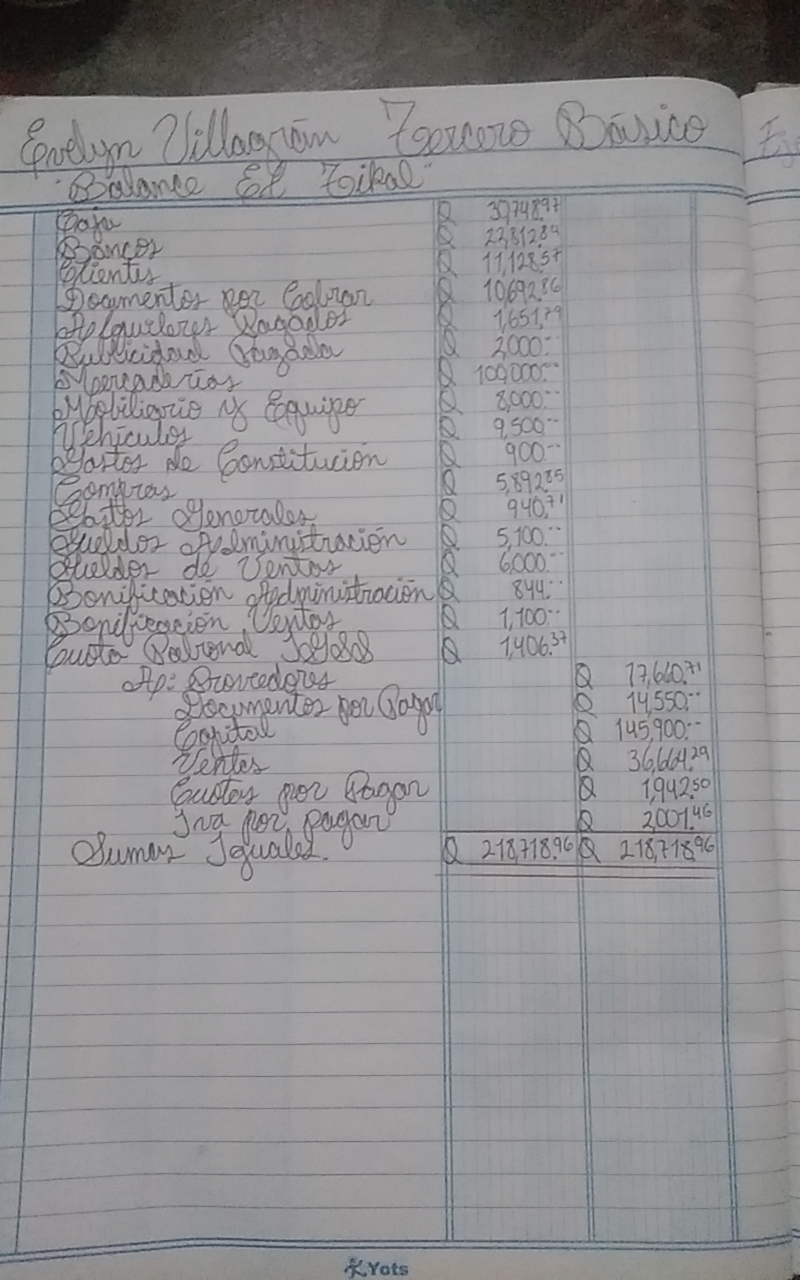 Evelyn Villagrán Tercero Básico
"Balance El Tikal"
Caja Q 30,748.97
Bancos Q 22,812.84
Clientes Q 11,128.57
Documentos por Cobrar Q 10,692.86
Alquileres Pagados Q 1,651.79
Publicidad Pagada Q 2,000.--
Mercaderías Q 100,000.--
Mobiliario y Equipo Q 8,000.--
Vehículos Q 9,500.--
Gastos de Constitución Q 900.--
Compras Q 5,892.85
Gastos Generales Q 940.71
Sueldos Administración Q 5,100.--
Sueldos de Ventas Q 6,000.--
Bonificación Administración Q 844.--
Bonificación Ventas Q 1,100.--
Cuota Patronal IGSS Q 1,406.37
Ap: Proveedores Q 17,660.71
Documentos por Pagar Q 14,550.--
Capital Q 145,900.--
Ventas Q 36,664.29
Cuotas por Pagar Q 1,942.50
Iva por pagar Q 2,001.46
Sumas Iguales. Q 218,718.96 Q 218,718.96
Yots